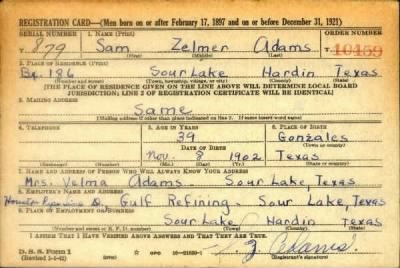 REGISTRATION CARD—(Men born on or after February 17, 1897 and on or before December 31, 1921)
SERIAL NUMBER 1. NAME (Print) ORDER NUMBER
T. 879 Sam Zelmer Adams T. 10459
(First) (Middle) (Last)
2. PLACE OF RESIDENCE (Print)
186 Sour Lake Hardin Texas
(Number and street) (Town, township, village, or city) (County) (State)
[THE PLACE OF RESIDENCE GIVEN ON THE LINE ABOVE WILL DETERMINE LOCAL BOARD
JURISDICTION; LINE 2 OF REGISTRATION CERTIFICATE WILL BE IDENTICAL]
3. MAILING ADDRESS
Same
[Mailing address if other than place indicated on line 2. If same insert word same]
4. TELEPHONE 5. AGE IN YEARS 6. PLACE OF BIRTH
39 Gonzales
DATE OF BIRTH (Town or county)
Nov. 8 1902 Texas
(Mo.) (Day) (Yr.) (State or country)
7. NAME AND ADDRESS OF PERSON WHO WILL ALWAYS KNOW YOUR ADDRESS
Mrs. Velma Adams Sour Lake, Texas
8. EMPLOYER'S NAME AND ADDRESS
Gulf Refining Sour Lake, Texas
9. PLACE OF EMPLOYMENT OR BUSINESS
Sour Lake Hardin Texas
(Number and street or R. F. D. number) (Town) (County) (State)
I AFFIRM THAT I HAVE VERIFIED ABOVE ANSWERS AND THAT THEY ARE TRUE.
D. S. S. Form 1
(Revised 1-1-42) GPO Adams
(Registrant's signature)